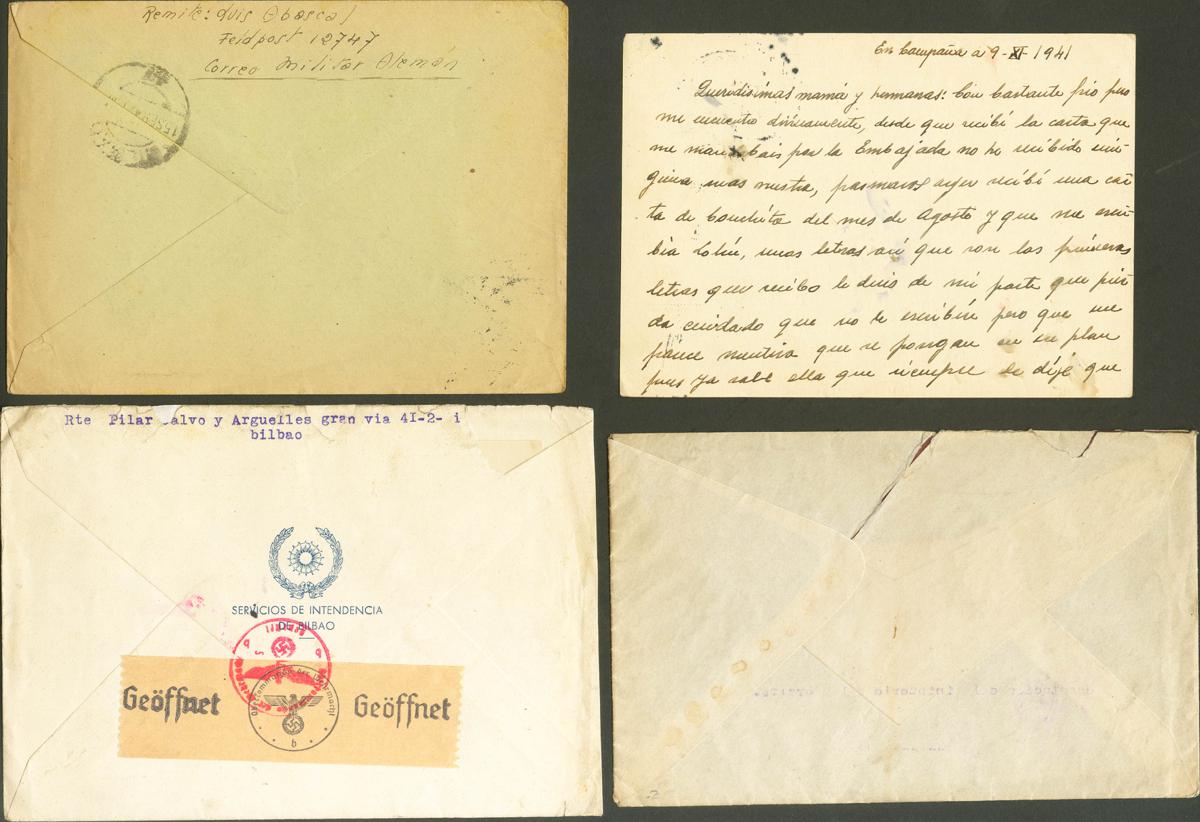 Remite: Luis Abascal
Feldpost 12747
Correo Militar Alemán
En Campaña a 9-XI-1941
Queridisimas mamá y hermanas: Con bastante frio pero
me encuentro divinamente, desde que recibí la carta que
me mandabais por la Embajada no he recibido nin-
guna mas vuestra, ayer recibí una car-
ta de Conchita del mes de Agosto y que me escri-
bia unas letras asi que son las primeras
letras que recibo le decis de mi parte que pier-
da cuidado que no le escribiré pero que me
parece mentira que se pongan en ese plan
pues ya sabe ella que siempre le dije que
Rte Pilar Calvo y Arguelles gran via 41-2- i
bilbao
SERVICIOS DE INTENDENCIA
DE BILBAO
Geöffnet
Geöffnet
b